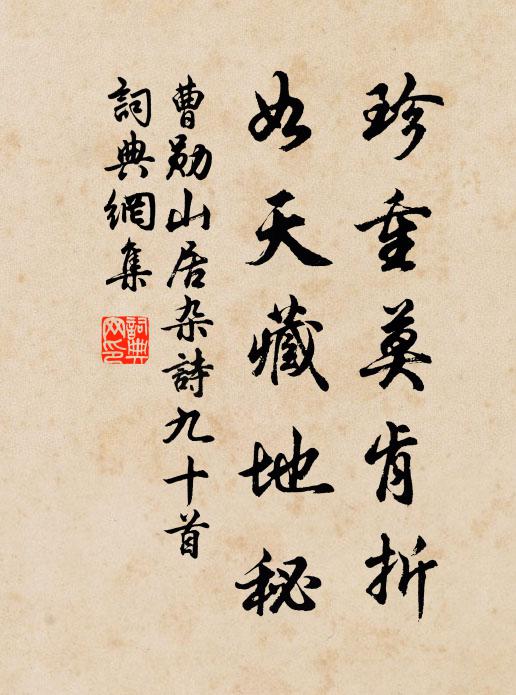 珍重莫肯折
如天藏地秘
曹勛山居杂詩九十首
詞典網集
詞典網印